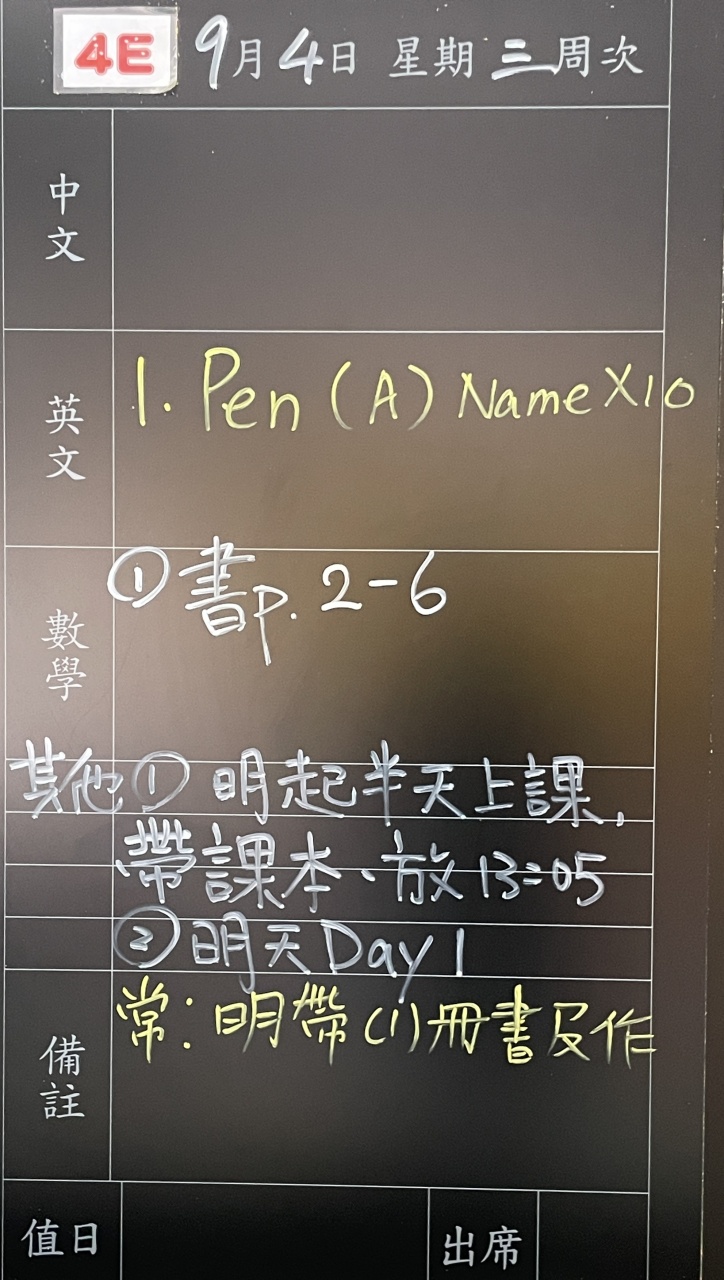 4E 9月4日 星期三周次
中文
英文 1. Pen (A) Name X10
數學 ① 書p. 2-6
其他① 明起半天上課,
帶課本、放13:05
② 明天Day 1
備註 常: 明帶(1)冊書及作
值日 出席